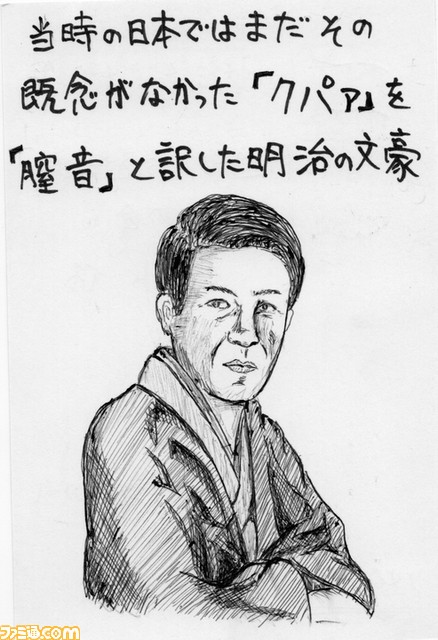 当時の日本ではまだその
既念がなかった「クパァ」を
「膣音」と訳した明治の文豪
ファミ通.com